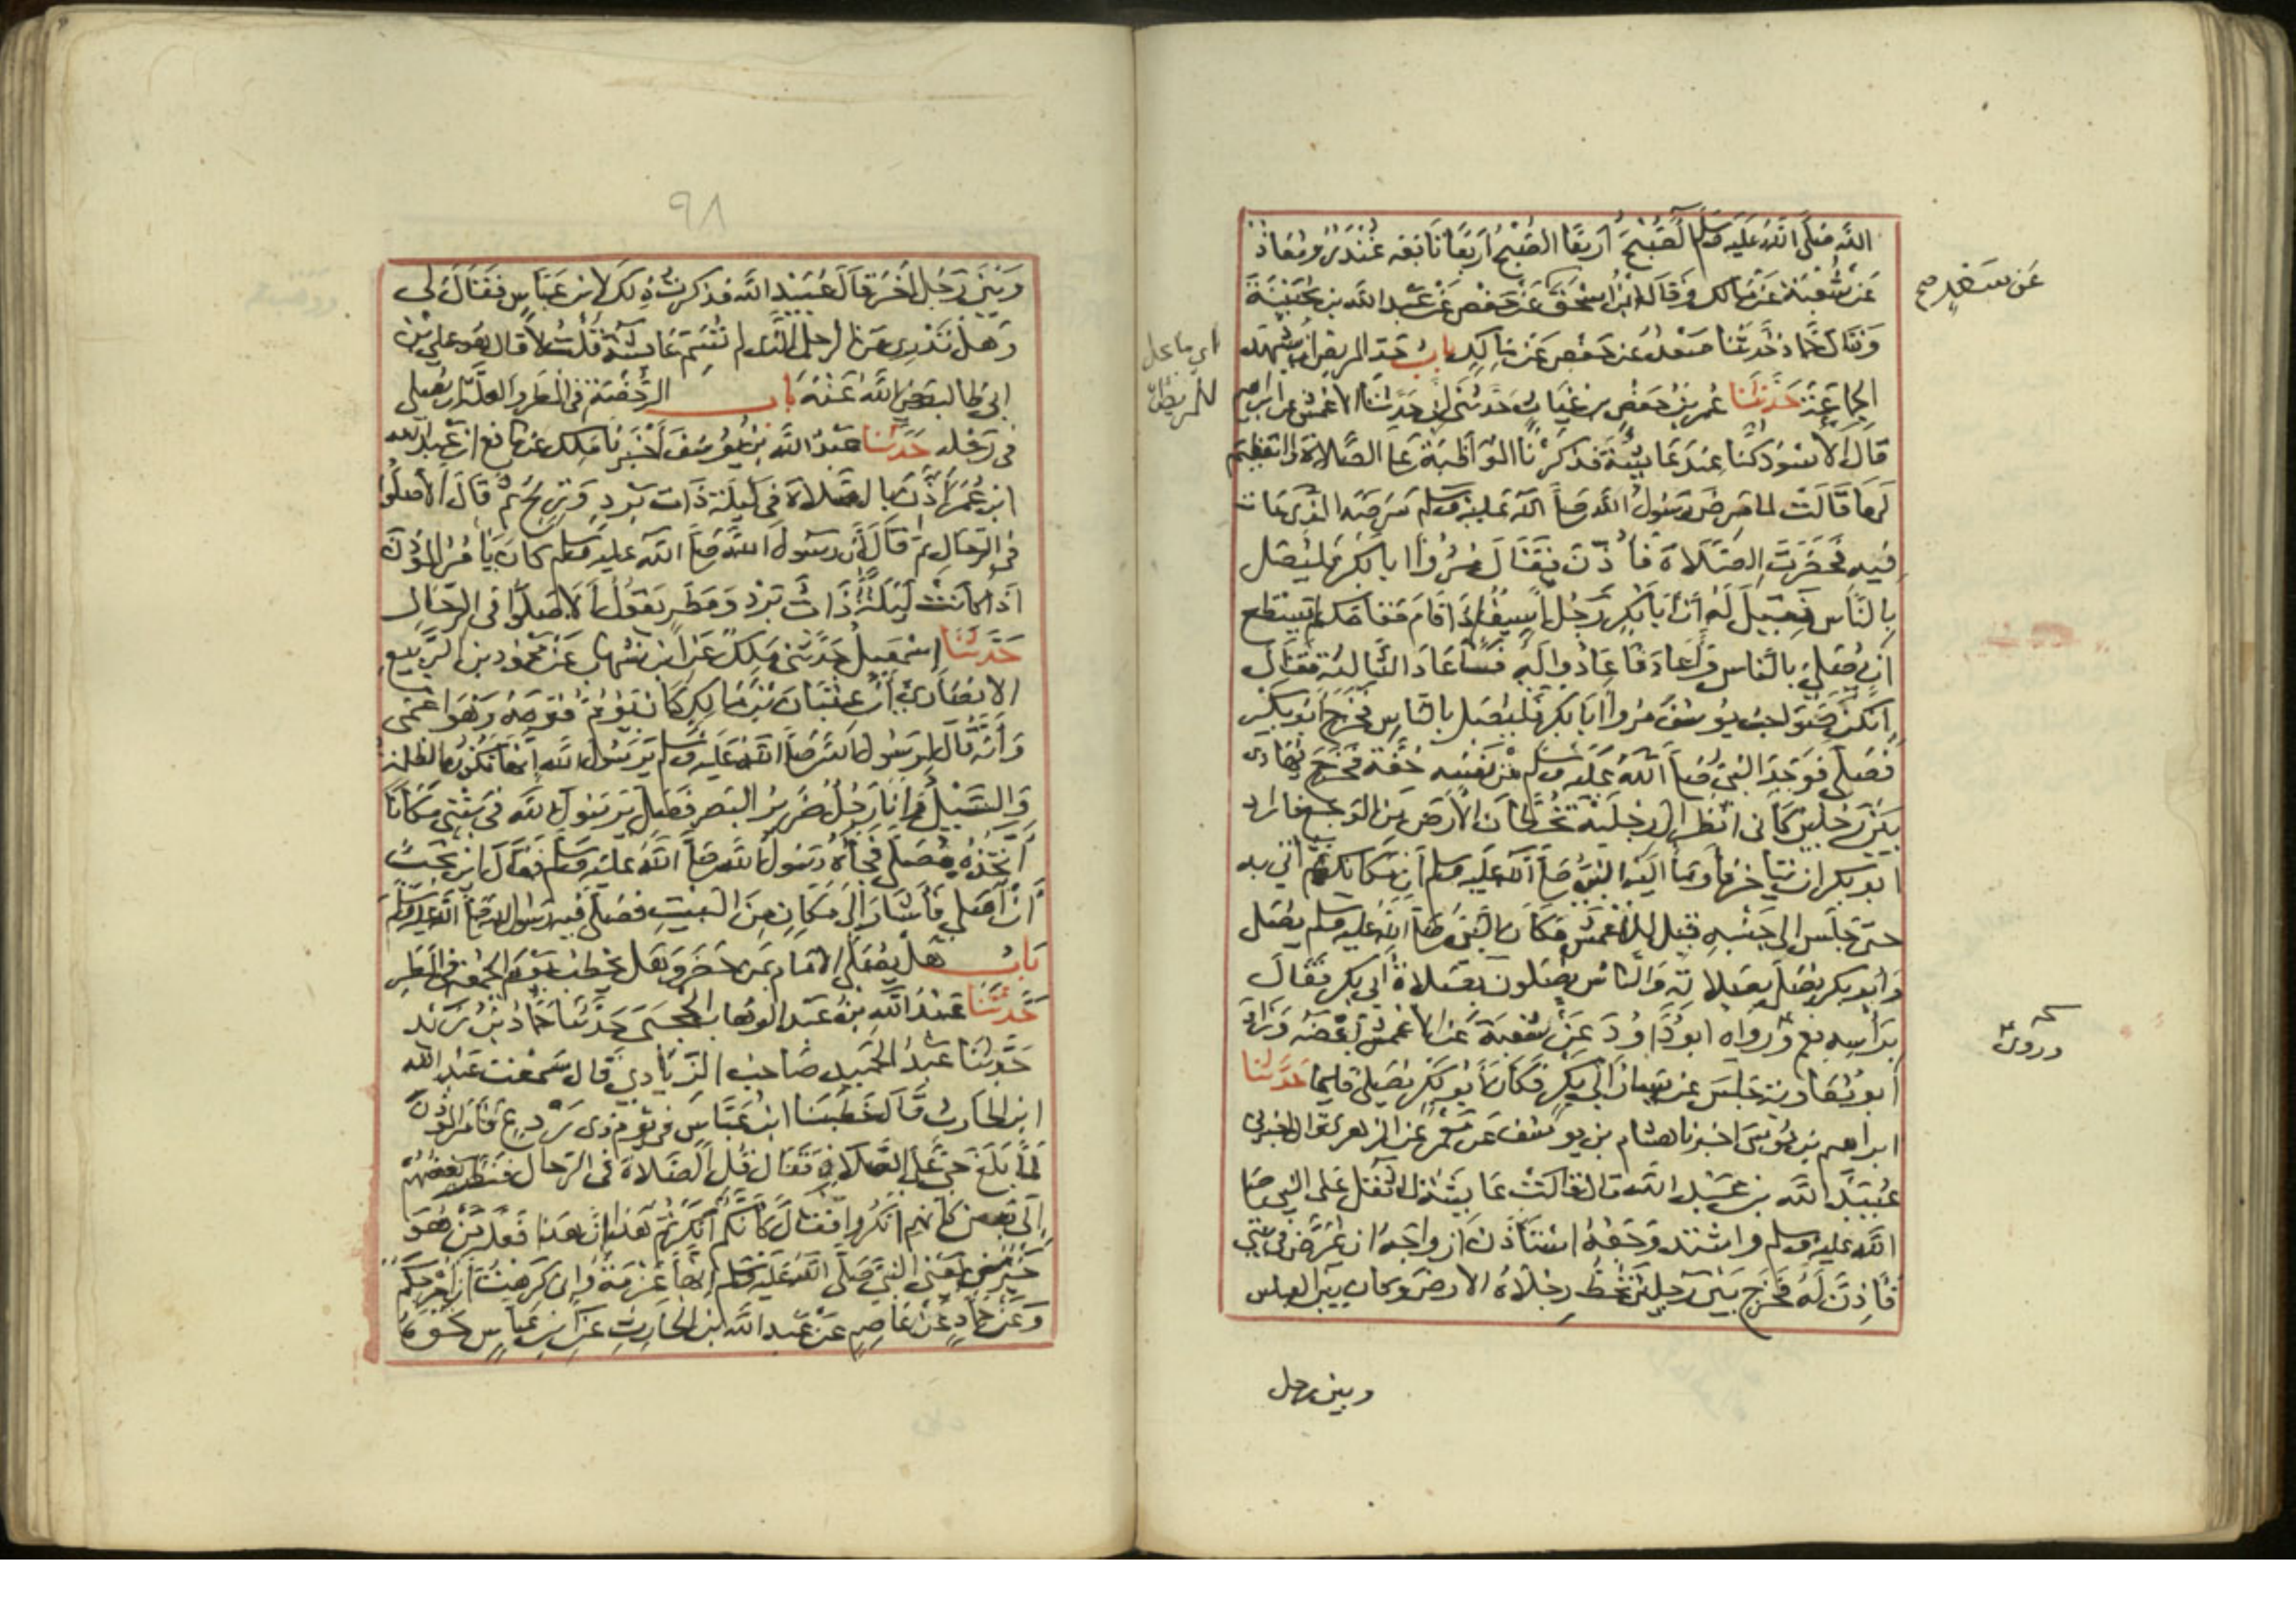 الله صلى الله عليه وسلم الصبح أربعا الصبح أربعا تابعه غندر ومعاذ
عن شعبة عن مالك وقال ابن اسحق عن حفص عن عبد الله بن بحينة
وقال حماد حدثنا سعد عن حفص عن مالك باب حد المريض ان يشهد
الجماعة حدثنا عمر بن حفص بن غياث حدثني ابي حدثنا الاعمش عن ابراهيم
قال الاسود كنا عند عايشة فذكرنا المواظبة على الصلاة والتعظيم
لها قالت لما مرض رسول الله صلى الله عليه وسلم مرضه الذي مات
فيه فحضرت الصلاة فأذن فقال مروا ابا بكر فليصل
بالناس فقيل له ان ابا بكر رجل اسيف اذا قام مقامك لم يستطع
ان يصلي بالناس واعاد فاعادوا له فاعاد الثالثة فقال
انكن صواحب يوسف مروا ابا بكر فليصل بالناس فخرج ابو بكر
فصلى فوجد النبي صلى الله عليه وسلم من نفسه خفة فخرج يهادى
بين رجلين كاني انظر الى رجليه تخطان الارض من الوجع فاراد
ابو بكر ان يتاخر فاومأ اليه النبي صلى الله عليه وسلم ان مكانك ثم اتي به
حتى جلس الى جنبه قيل للاعمش فكان النبي صلى الله عليه وسلم يصلي
وابو بكر يصلي بصلاته والناس يصلون بصلاة ابي بكر فقال
برأسه نعم ورواه ابو داود عن شعبة عن الاعمش بعضه وزاد
ابو معاوية جلس عن يسار ابي بكر فكان ابو بكر يصلي قايما حدثنا
ابراهيم بن موسى اخبرنا هشام بن يوسف عن معمر عن الزهري قال اخبرني
عبيد الله بن عبد الله قال قالت عايشة لما ثقل على النبي صلى
الله عليه وسلم واشتد وجعه استأذن ازواجه ان يمرض في بيتي
فأذن له فخرج بين رجلين تخط رجلاه الارض وكان بين العباس
عن سعد صح
اي ما يحل
للمريض
وبين رجل
٩٨
وبين رجل اخر قال عبيد الله فذكرت ذلك لابن عباس فقال لي
وهل تدري من الرجل الذي لم تسم عايشة قلت لا قال هو علي بن
ابي طالب رضي الله عنه باب الرخصة في المطر والعلة ان يصلي
في رحله حدثنا عبد الله بن يوسف اخبرنا ملك عن نافع ان عبد الله
ابن عمر اذن بالصلاة في ليلة ذات برد وريح ثم قال الا صلوا
في الرحال ثم قال ان رسول الله صلى الله عليه وسلم كان يامر المؤذن
اذا كانت ليلة ذات برد ومطر يقول الا صلوا في الرحال
حدثنا اسمعيل حدثني ملك عن ابن شهاب عن محمود بن الربيع
الانصاري ان عتبان بن مالك كان يؤم قومه وهو اعمى
وانه قال لرسول الله صلى الله عليه وسلم يرسول الله انها تكون الظلمة
والسيل وانا رجل ضرير البصر فصل يرسول الله في بيتي مكانا
اتخذه مصلى فجاءه رسول الله صلى الله عليه وسلم فقال اين تحب
ان اصلي فأشار الى مكان من البيت فصلى فيه رسول الله صلى الله عليه وسلم
باب هل يصلي الامام بمن حضر وهل يخطب يوم الجمعة في المطر
حدثنا عبد الله بن عبد الوهاب الحجبي حدثنا حماد بن زيد
حدثنا عبد الحميد صاحب الزيادي قال سمعت عبد الله
ابن الحارث قال خطبنا ابن عباس في يوم ذي ردغ فأمر المؤذن
لما بلغ حي على الصلاة فقال قل الصلاة في الرحال فنظر بعضهم
الى بعض كانهم انكروا فقال كأنكم انكرتم هذا ان هذا فعله من هو
خير مني يعني النبي صلى الله عليه وسلم انها عزمة واني كرهت ان احرجكم
وعن حماد عن عاصم عن عبد الله ابن الحارث عن ابن عباس نحوه